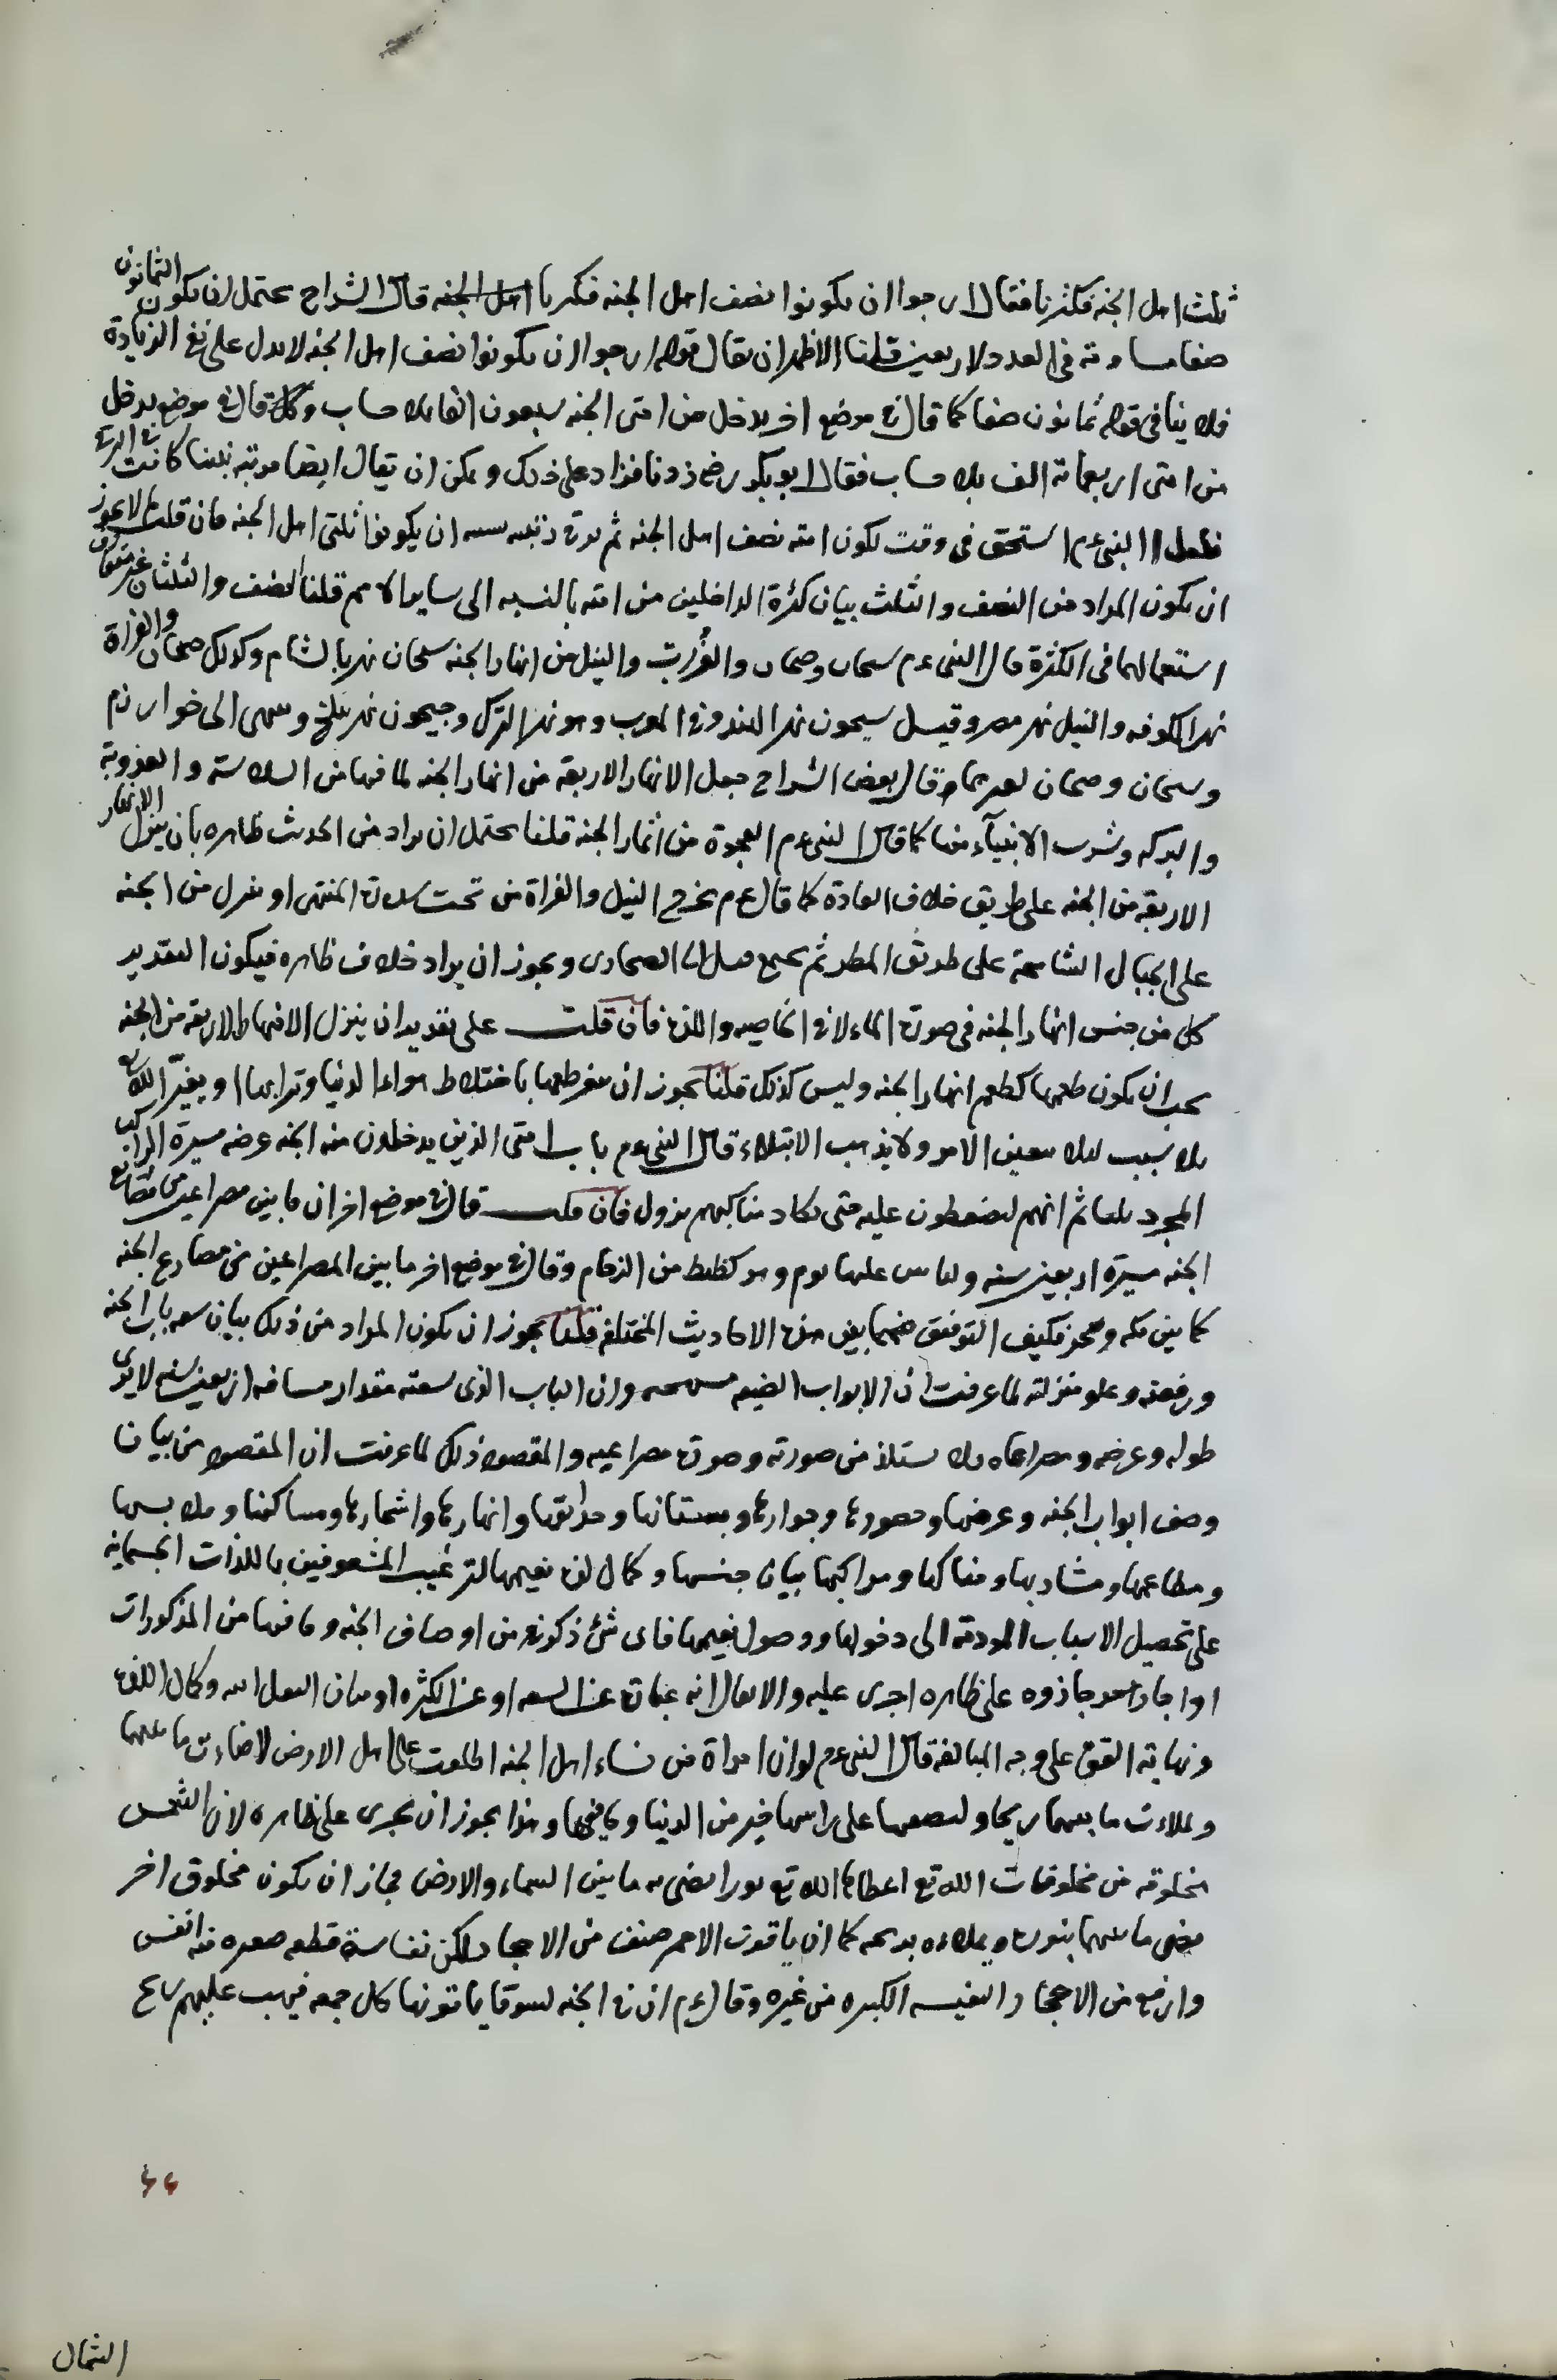 ثلث اهل الجنه فكبرنا فقال ارجوا ان يكونوا نصف اهل الجنه فكبرنا اهل الجنه قال الشراح يحتمل ان يكون الثمانون
صفا مساويه في العدد لاربعين قلنا الاظهر ان يقال قوله ارجوا ان يكونوا نصف اهل الجنه لا يدل على نفي الزيادة
فلا ينافي قوله ثمانون صفا كما قال في موضع اخر يدخل من امتي الجنه سبعون الفا بلا حساب وكك قال في موضع يدخل
من امتي اربعمائة الف بلا حساب فقال ابو بكر رضي زدنا فزاد على ذلك ويمكن ان يقال ايضا مرتبة نبينا كانت في الترقي
فلعل النبي ءم استحق في وقت يكون امته نصف اهل الجنه ثم ان يكونوا ثلثي اهل الجنه فان قلت لم لا يجوز
ان يكون المراد من النصف والثلث بيان كثرة الداخلين من امته بالنسبه الى ساير الامم قلنا النصف والثلثان غير متعارف
استعمالهما في الكثرة قال النبي ءم سيحان وجيحان والفرات والنيل من انهار الجنه سيحان نهر بالشام وكذلك جيحان والفراة
نهر الكوفه والنيل نهر مصر وقيل سيحون نهر الهند وجيحون نهر بلخ وينتهي الى خوارزم
وسيحان وجيحان وقال بعض الشراح جعل الانهار الاربعة من انهار الجنه لما فيها من السلاسة والعذوبة
والبركه وشرب الانبيآء منها كما قال النبي ءم العجوة من اثمار الجنه قلنا يحتمل ان يراد من الحديث ظاهره بان ينزل الانهار
الاربعة من الجنه على طريق خلاف العادة كما قال ءم يخرج النيل والفراة من تحت سدرة المنتهى او ينزل من الجنه
على الجبال الشامخة على طريق المطر ثم يجمع الصحارى ويجوز ان يراد خلاف ظاهره فيكون التقدير
كل من جنس انهار الجنه في صورة الماء لا في الخاصيه واللذة فان قلت على تقدير ان ينزل الانهار الاربعة من الجنه
يجب ان يكون طعمها كطعم انهار الجنه وليس كذلك قلنا يجوز ان يتغير طعمها باختلاط هواء الدنيا وترابها او يغيّر الله تع
بلا سبب لئلا يتعين الامر ولا يذهب الابتلاء قال النبي ءم باب امتي الذين يدخلون منه الجنه عرضه مسيرة الراكب
المجود ثلثا ثم انهم ليضغطون عليه حتى تكاد مناكبهم تزول فان قلت قال في موضع اخر ان ما بين مصراعين من مصاريع
الجنه مسيرة اربعين سنه ولياتين عليها يوم وهو كظيظ من الزحام وقال في موضع اخر ما بين المصراعين من مصارع الجنه
كما بين مكه وهجر فكيف التوفيق بين هذه الاحاديث المختلفة قلنا يجوز ان يكون المراد من ذلك بيان سعه باب الجنه
ورفعته وعلو منزلته لما عرفت ان الابواب الضيقه وان الباب الذي سعته مقدار مسافه اربعين سنه لا يرى
طوله وعرضه ومصراعاه ولا يستلذ من صورته وصورة مصراعيه والمقصود ذلك لما عرفت ان المقصود من بيان
وصف ابواب الجنه وعرضها وحصورها وجوارها وبستانها وحدائقها وانهارها واشجارها ومساكنها وملابسها
ومطاعمها ومشاربها ومناكحها ومراكبها بيان جنسها وكمال لذة نعيمها لترغيب المشعوفين باللذات الجسمانية
على تحصيل الاسباب المودية الى دخولها ووصول نعيمها فاى شئ ذكر من اوصاف الجنه وما فيها من المذكورات
على ظاهره اجرى عليه والا يقال انه عبارة عن السعه او عن الكثره او وكمال اللذة
ونهاية القوة على وجه المبالغة قال النبي ءم لو ان امراة من نساء اهل الجنه اطلعت على اهل الارض لاضاءت ما بينهما
ولملاءت ما بينهما ريحا ولنصيفها على راسها خير من الدنيا وما فيها وهذا يجوز ان يجرى على ظاهره لان الشمس
مخلوقه من مخلوقات الله تع اعطاها الله تع نورا يضئ به ما بين السماء والارض فجاز ان يكون مخلوق اخر
يضئ ما بينهما بنوره ويملاءه بريحه كما ان ياقوت الاحمر صنف من الاحجار لكن نفاسة قطعه صغيره منه انفس
وارفع من الاحجار النفيسه الكبيره من غيره وقال ءم ان في الجنه لسوقا ياتونها كل جمعه فيهب عليهم ريح
٤٤
الشمال